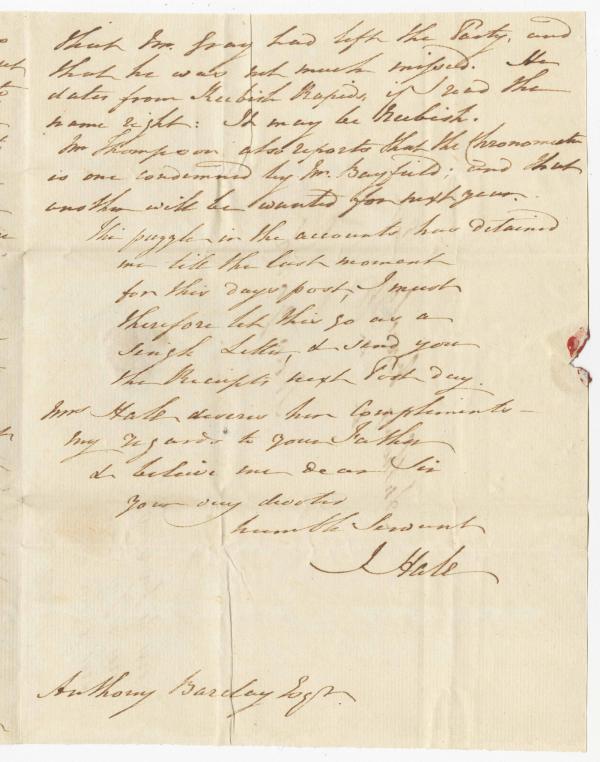 that Mr. Gray had left the Party, and
that he was not much missed. He
dates from Keebish Rapids, if I read the
name right: It may be Reebish.
Mr Thompson also reports that the Chronometer
is one condemned by Mr. Bayfield; and that
another will be wanted for next year.
This puzzle in the accounts has detained
me till the last moment
for this days post, I must
therefore let this go as a
single Letter, & send you
the Receipts next Post day.
Mrs Hale desires her Compliments—
My regards to your Father
& believe me dear Sir
your very devoted
humble Servant
J Hale
Anthony Barclay Esqr.